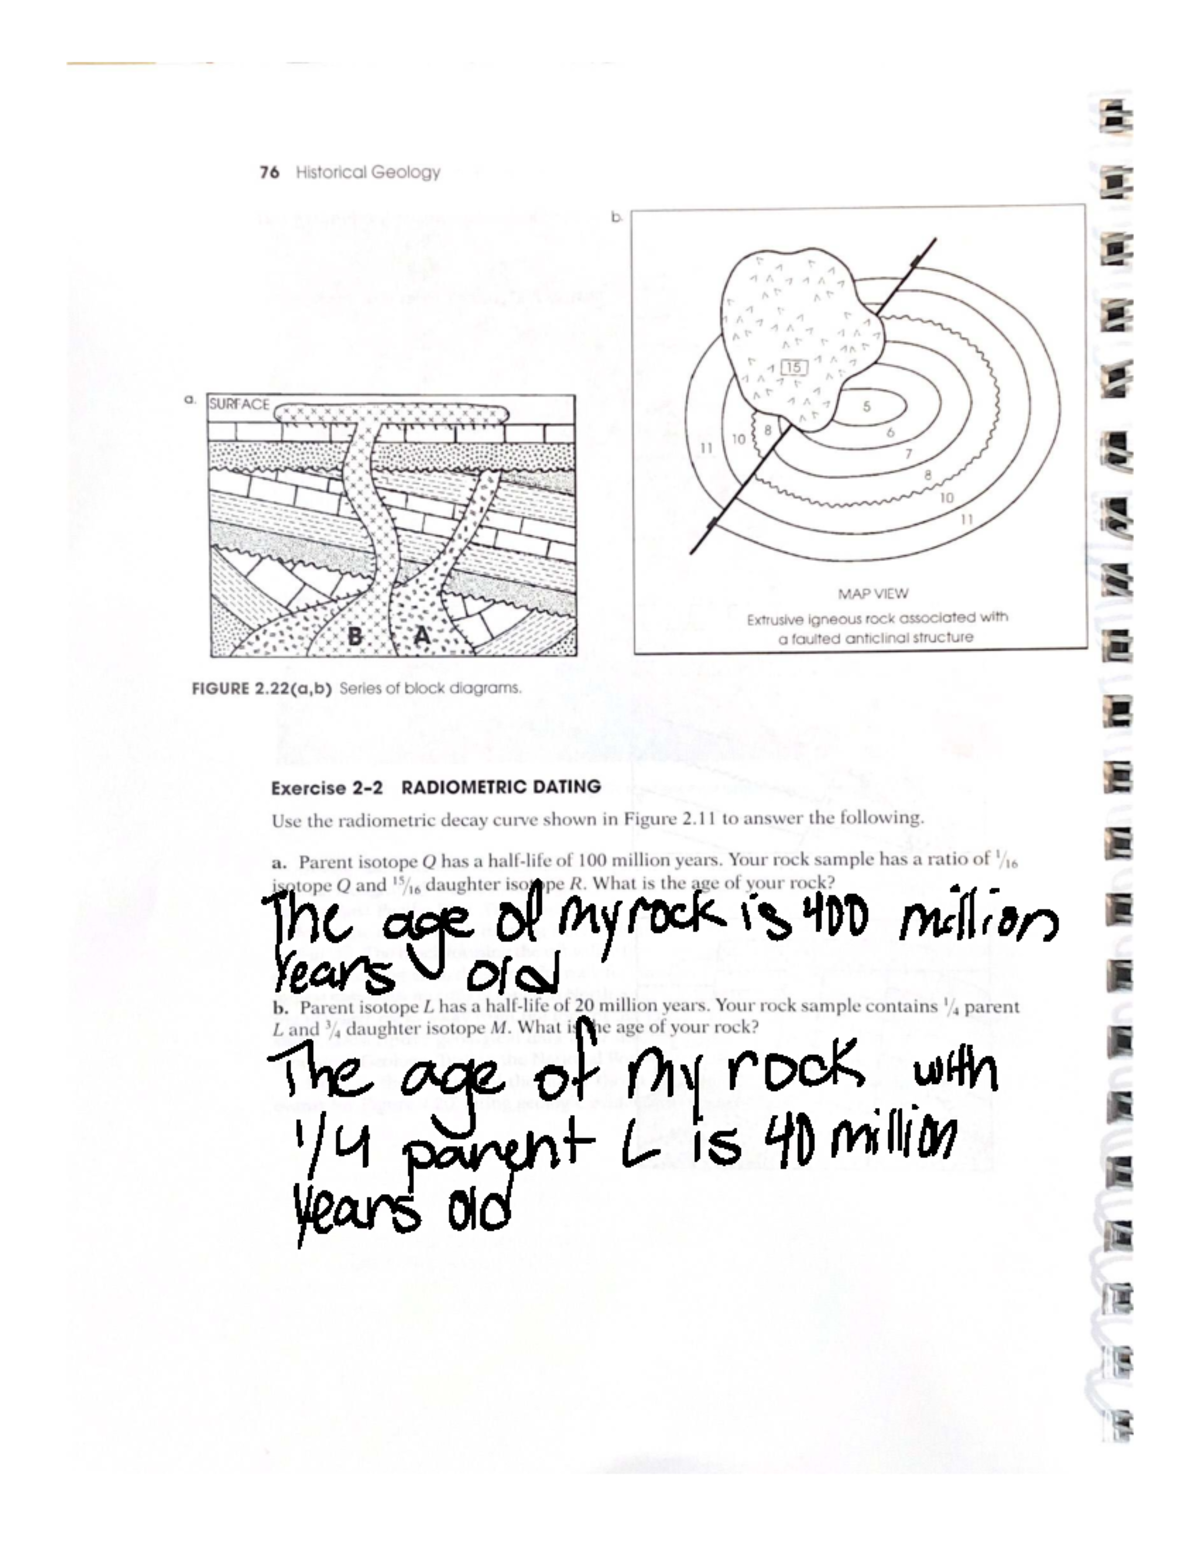 76 Historical Geology
b.
15
5
6
7
8
8
10
10
11
11
MAP VIEW
Extrusive igneous rock associated with
a faulted anticlinal structure
a.
SURFACE
B
A
FIGURE 2.22(a,b) Series of block diagrams.
Exercise 2–2 RADIOMETRIC DATING
Use the radiometric decay curve shown in Figure 2.11 to answer the following.
a. Parent isotope Q has a half-life of 100 million years. Your rock sample has a ratio of 1/16
isotope Q and 15/16 daughter isotope R. What is the age of your rock?
The age of my rock is 400 million
Years old
b. Parent isotope L has a half-life of 20 million years. Your rock sample contains 1/4 parent
L and 3/4 daughter isotope M. What is the age of your rock?
The age of my rock with
1/4 parent L is 40 million
Years old